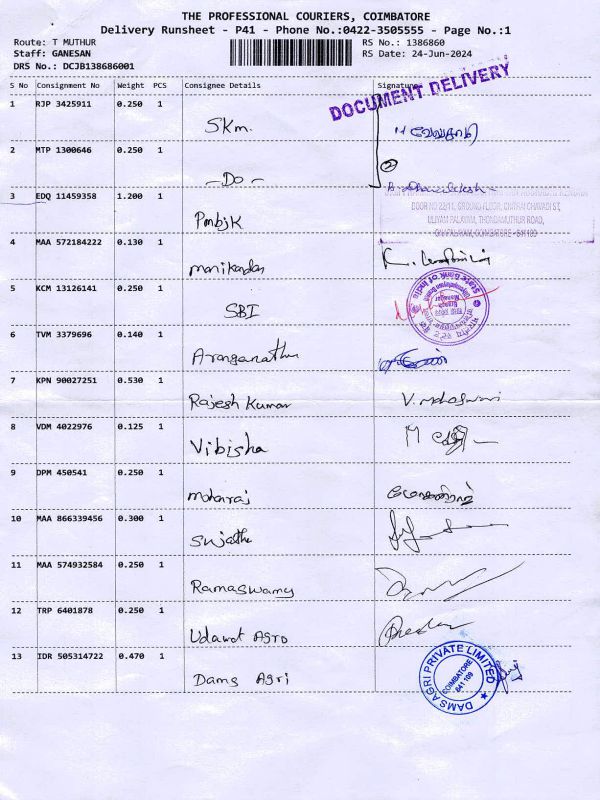 THE PROFESSIONAL COURIERS, COIMBATORE
Delivery Runsheet - P41 - Phone No.:0422-3505555 - Page No.:1
Route: T MUTHUR
RS No.: 1386860
Staff: GANESAN
RS Date: 24-Jun-2024
DRS No.: DCJB138686001
S No Consignment No Weight PCS Consignee Details Signature
DOCUMENT DELIVERY
1 RJP 3425911 0.250 1
SKm.
2 MTP 1300646 0.250 1
2
-Do-
3 EDQ 11459358 1.200 1
DOOR NO 22/11, GROUND FLOOR, CHITRAI CHAVADI ST,
ULIYAM PALAYAM, THONDAMUTHUR ROAD,
COIMBATORE - 641109
PmbjK
4 MAA 572184222 0.130 1
manikandan
5 KCM 13126141 0.250 1
SBI
State Bank of India
6 TVM 3379696 0.140 1
Aranganathan
7 KPN 90027251 0.530 1
Rajesh Kumar
8 VDM 4022976 0.125 1
Vibisha
9 DPM 450541 0.250 1
mohanraj
10 MAA 866339456 0.300 1
Sujatha
11 MAA 574932584 0.250 1
Ramaswamy
12 TRP 6401878 0.250 1
Udawat Agro
13 IDR 505314722 0.470 1
Dams Agri
DAMS AGRI PRIVATE LIMITED
COIMBATORE
641 109